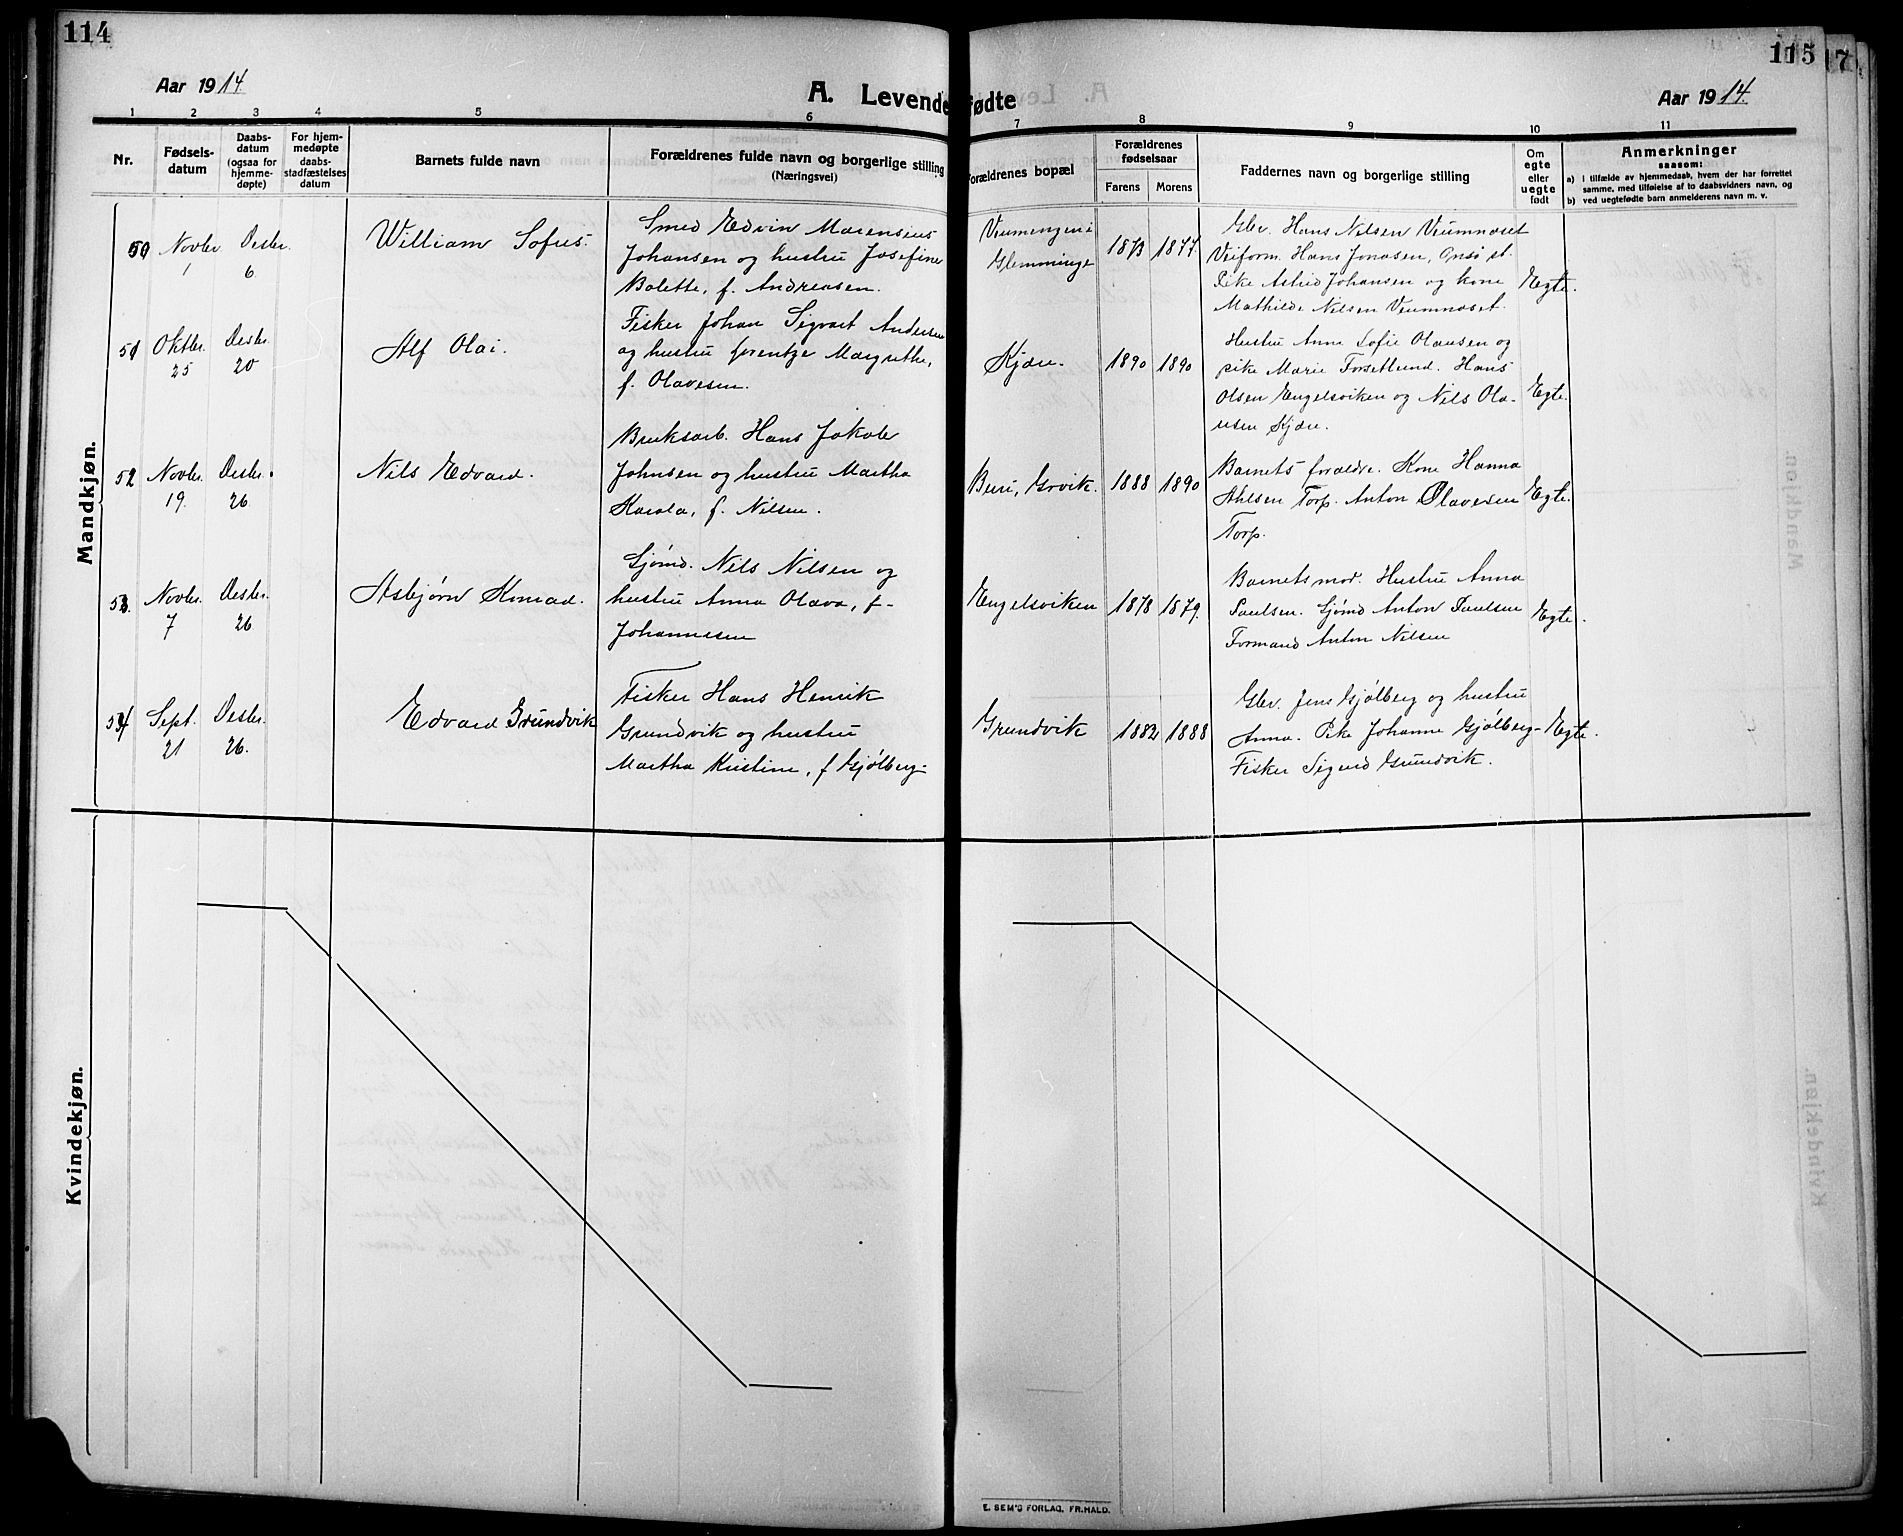 114
Aar 1914.
A. Levendefødte
115
17
Aar 1914.
1 2 3 4 5 6 7 8 9 10 11
Nr.
Fødsels-
datum
Daabs-
datum
(ogsaa for
hjemme-
døpte)
For hjem-
medøpte
daabs-
stadfæstelses
datum
Barnets fulde navn
Forældrenes fulde navn og borgerlige stilling
(Næringsvei)
Forældrenes bopæl
Forældrenes
fødselsaar
Farens Morens
Faddernes navn og borgerlige stilling
Om
egte
eller
uegte
født
Anmerkninger
saasom:
a) i tilfælde av hjemmedaab, hvem der har forrettet
samme, med tilføielse af to daabsvidners navn, og
b) ved uegtefødte barn anmelderens navn m. v.
Mandkjøn.
50
Novbr.
1
Desbr.
6
William Sofus.
Smed Edvin Marensius
Johansen og hustru Josefine
Bolette, f. Andreasen.
Veumengen i
Glemminge
1873 1877.
Gbr. Hans Nilsen Veumnæset
Veiform. Hans Jonasen, Onsö st.
Pike Astrid Johansen og kone
Mathilde Nilsen Veumnæset.
Egte.
51
Oktbr.
25
Desbr.
20
Alf Olai.
Fisker Johan Sigvart Andersen
og hustru Lorentze Margrethe,
f. Olavesen.
Kjære.
1890 1890
Hustru Anne Sofie Olausen og
pike Marie Forsetlund. Hans
Olsen Engelsviken og Nils Ola-
usen Kjære.
Egte.
52
Novbr.
19.
Desbr.
26.
Nils Edvard.
Bruksarb. Hans Jakob
Johnsen og hustru Martha
Karola, f. Nilsen.
Buri, Grvik.
1888 1890
Barnets forældre. Kone Hanna
Ahlsen Torp. Anton Olavesen
Torp.
Egte.
53
Novbr.
7
Desbr.
26
Asbjørn Konrad.
Sjømd. Nils Nilsen og
hustru Anna Olava, f.
Johannesen
Engelsviken
1878 1879.
Barnets mor. Hustru Anna
Paulsen. Sjømd Anton Paulsen
Formand Anton Nilsen
Egte.
54
Sept.
21
Desbr.
26.
Edvard Grundvik
Fisker Hans Henrik
Grundvik og hustru
Martha Kristine, f Gjølberg.
Grundvik
1882 1888
Gbr. Jens Gjølberg og hustru
Anna. Pike Johanne Gjølberg
Fisker Sigurd Grundvik.
Egte.
Kvindekjøn.
E. SEM'S FORLAG, FR.HALD.